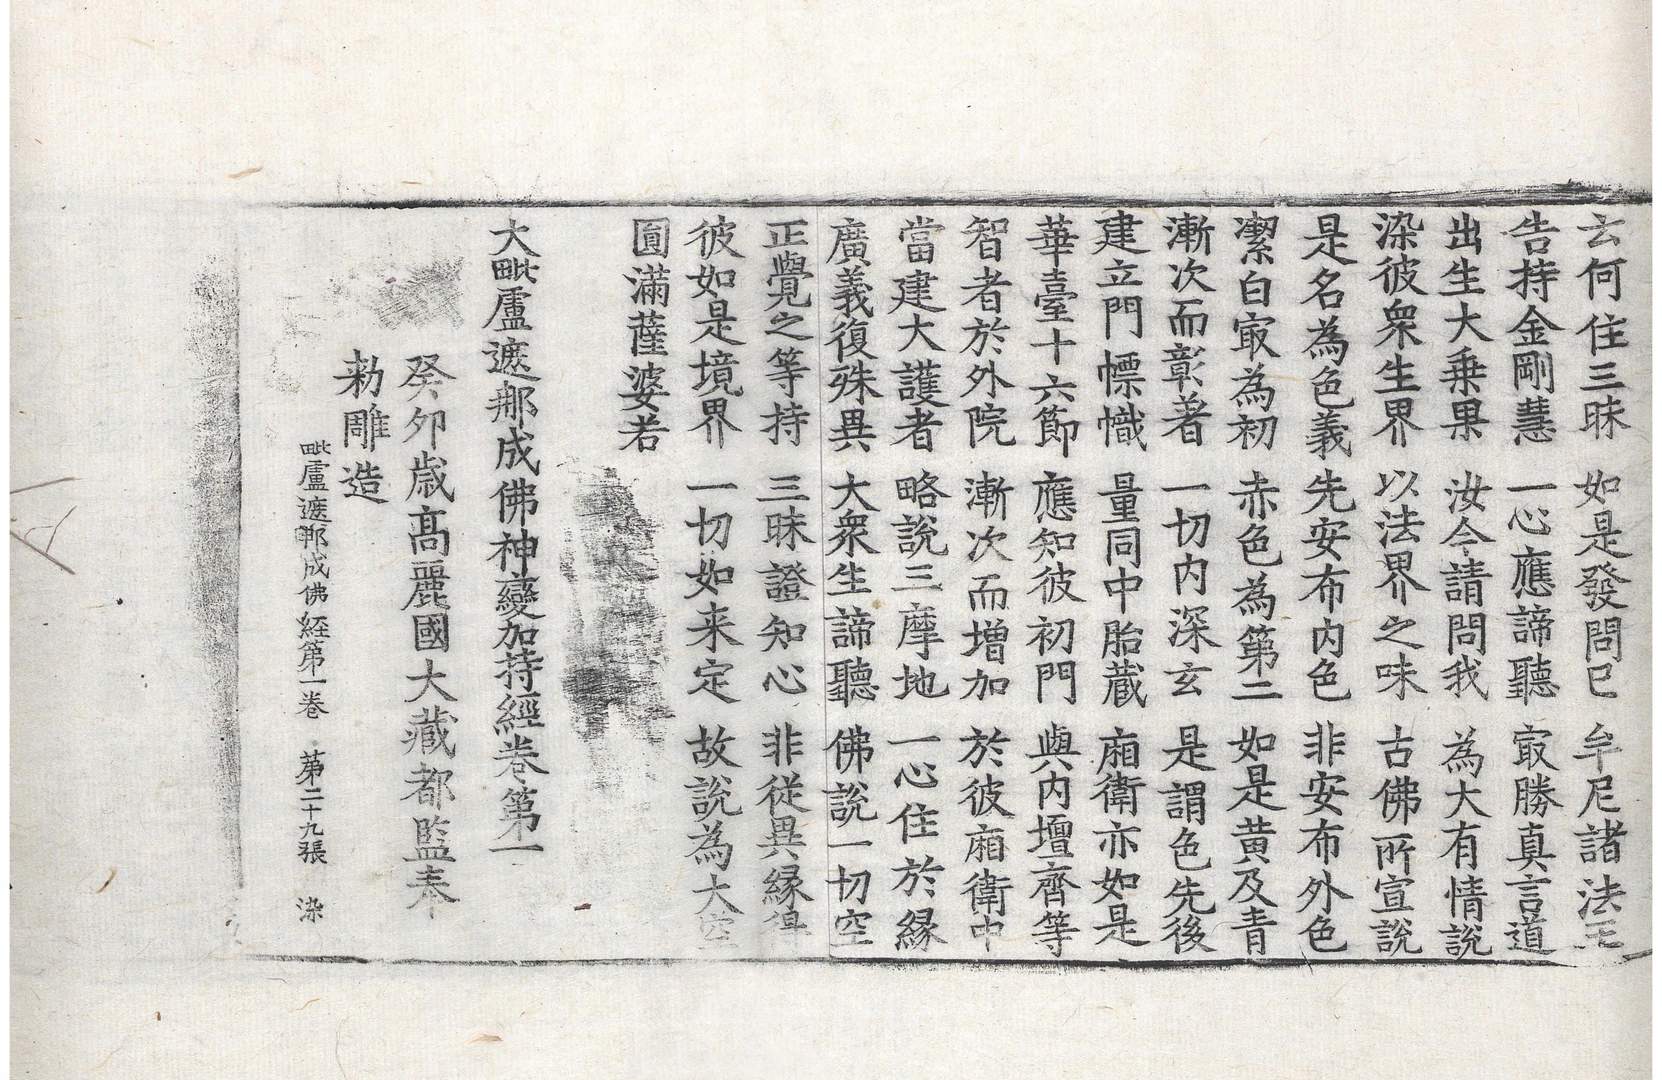 云何住三昧　如是發問已　牟尼諸法王
告持金剛慧　一心應諦聽　㝡勝真言道
出生大乗果　汝今請問我　為大有情說
染彼衆生界　以法界之味　古佛所宣說
是名為色義　先安布內色　非安布外色
潔白㝡為初　赤色為第二　如是黄及青
漸次而彰著　一切內深玄　是謂色先後
建立門㯹幟　量同中胎蔵　廂衛亦如是
華臺十六節　應知彼初門　與內壇齊等
智者於外院　漸次而增加　於彼廂衛中
當建大護者　略說三摩地　一心住於緣
廣義復殊異　大衆生諦聽　佛說一切空
正覺之等持　三昧證知心　非從異緣得
彼如是境界　一切如来定　故說為大空
圓滿薩婆若
大毗盧遮那成佛神變加持經卷第一
癸夘歳高麗國大藏都監奉
勑雕造
毗盧遮那成佛経第一巻　苐二十九張　染